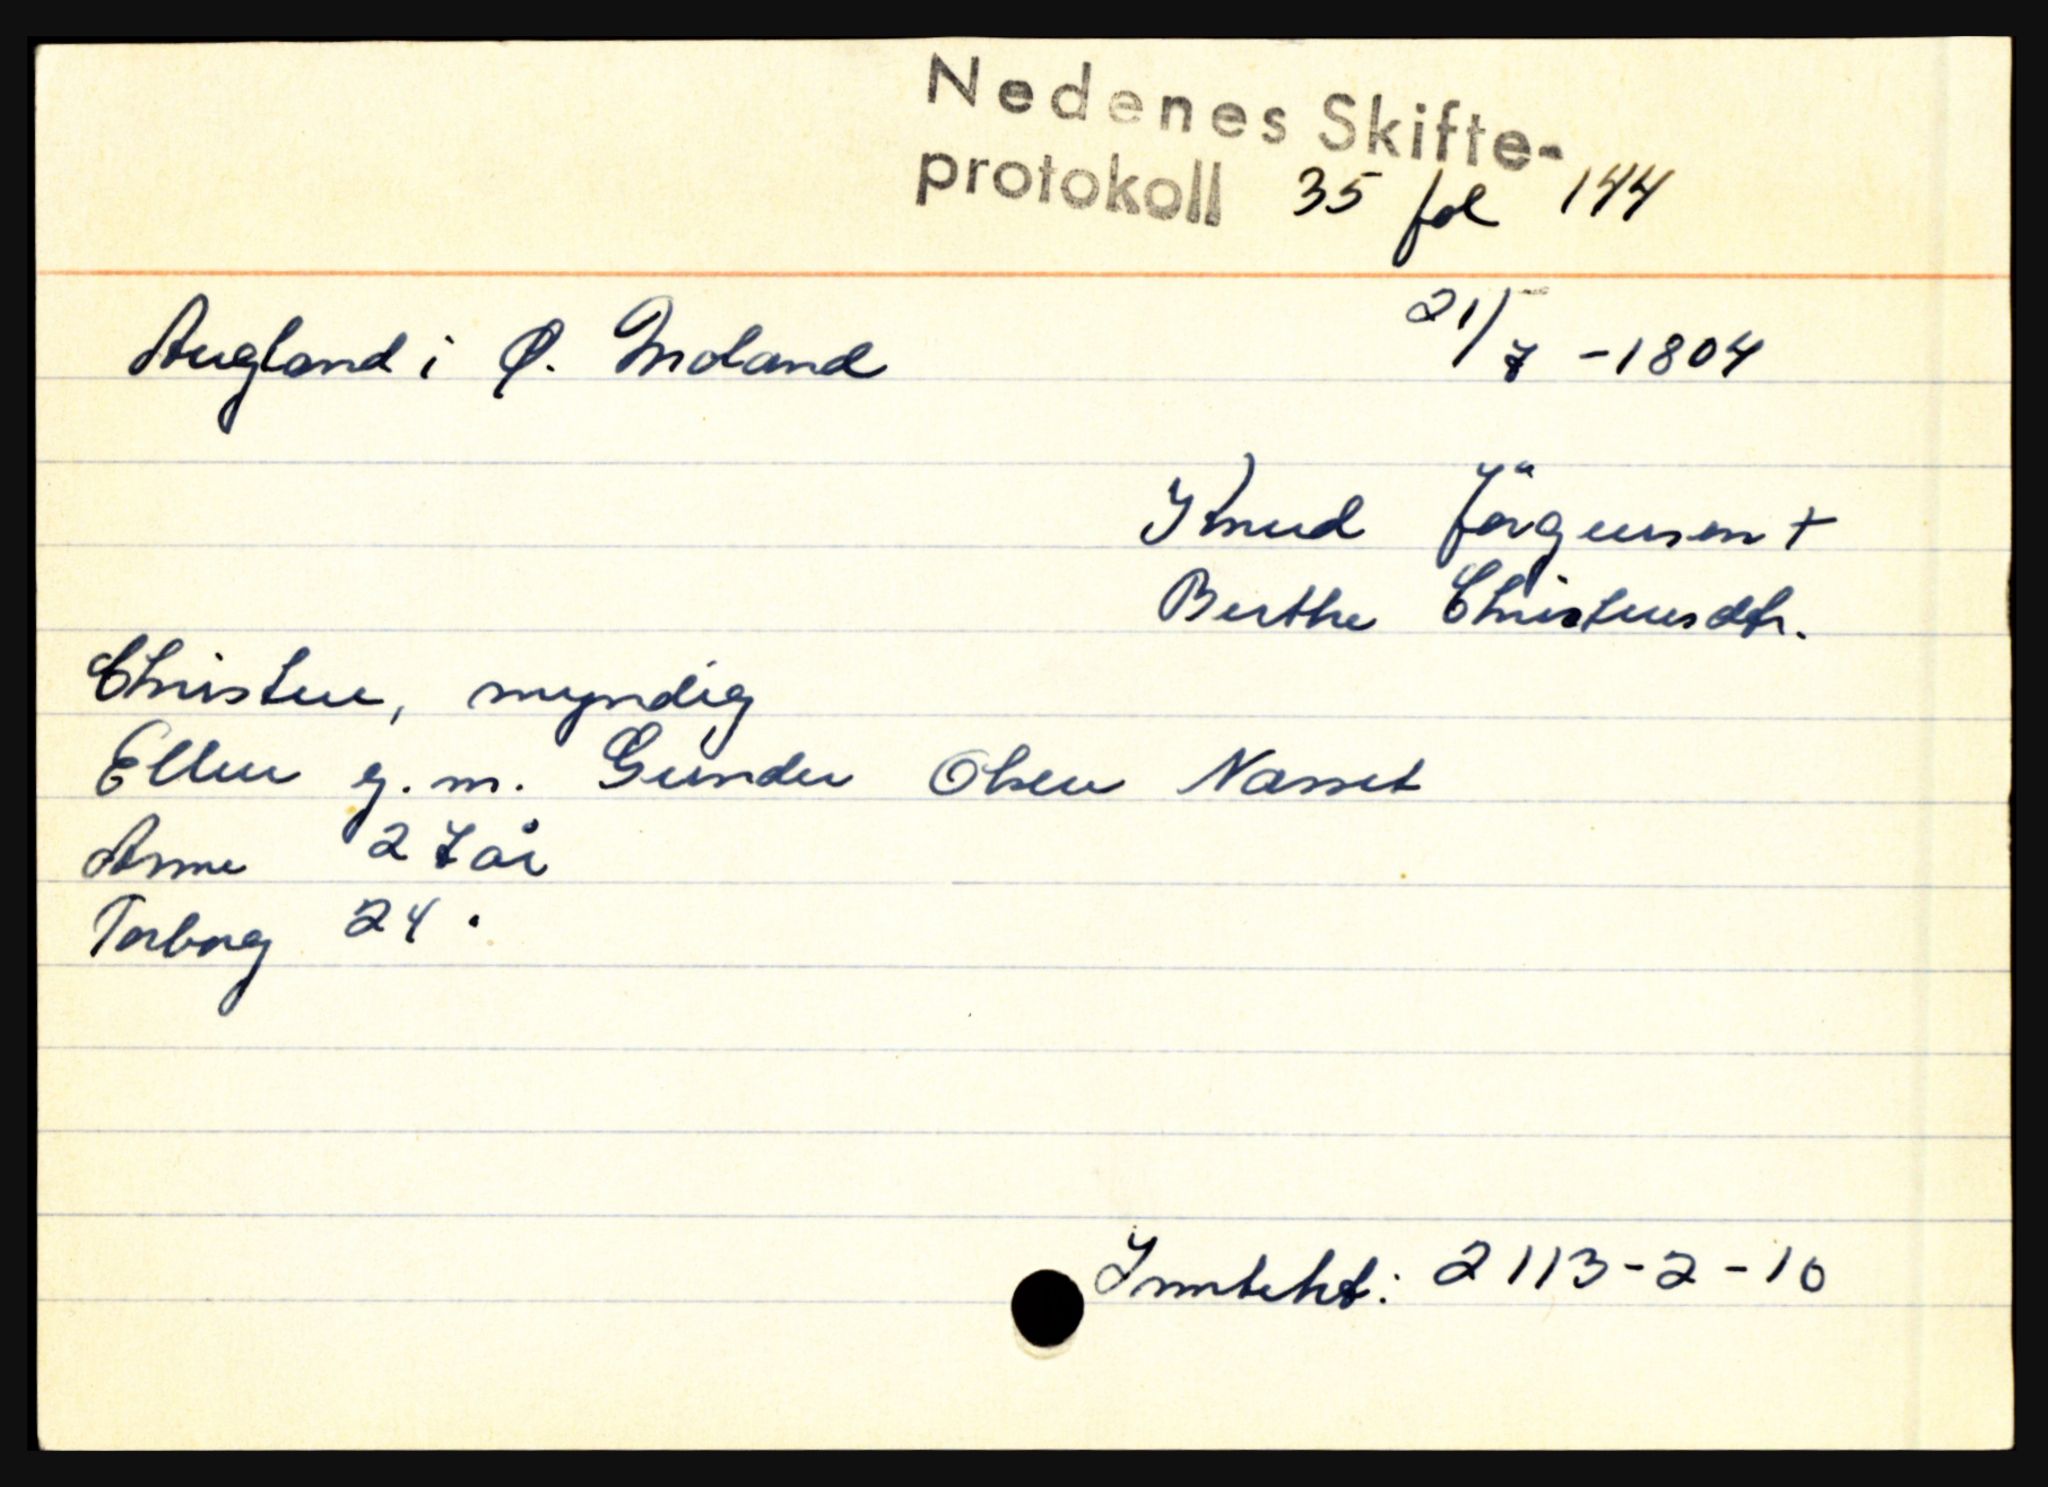 Nedenes Skifte-
protokoll 35 fol 144
Augland i Ø. Moland 21/7 - 1804
Knud Jörgensen +
Berthe Christensdtr.
Christen, myndig
Ellen g.m. Gunder Olsen Næsset
Anne 27 år
Torborg 24 "
Inntekt: 2113-2-10